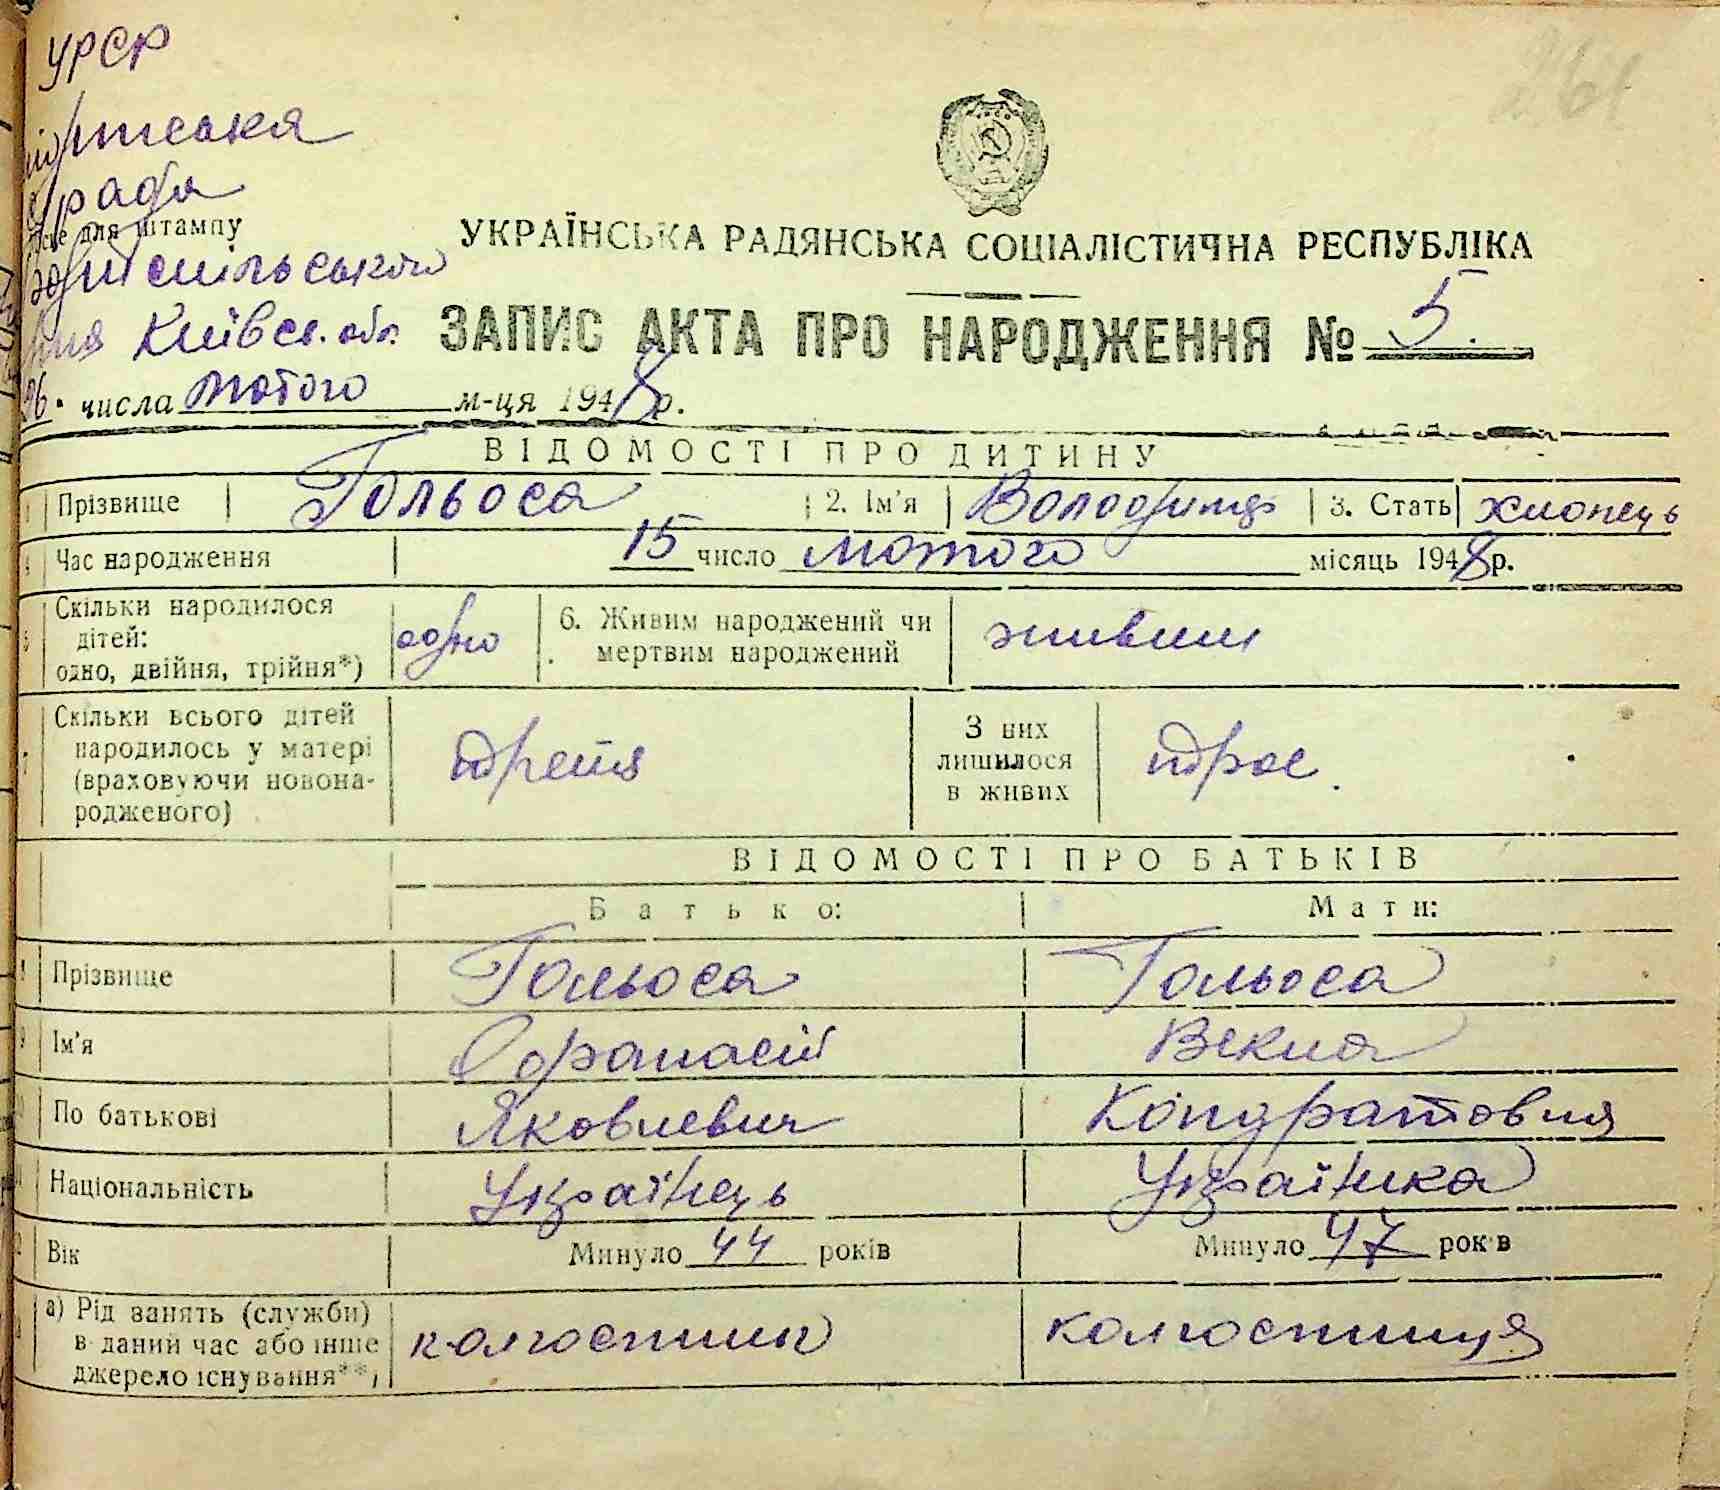 УРСР
рада
місце для штампу
Київск. обл.
УКРАЇНСЬКА РАДЯНСЬКА СОЦІАЛІСТИЧНА РЕСПУБЛІКА
ЗАПИС АКТА ПРО НАРОДЖЕННЯ № 5.
26. числа лютого м-ця 1948 р.
ВІДОМОСТІ ПРО ДИТИНУ
1 Прізвище Гольоса 2. Ім'я Володимир 3. Стать хлопець
4 Час народження 15 число лютого місяць 1948 р.
5 Скільки народилося дітей: одно, двійня, трійня*) одно 6. Живим народжений чи мертвим народжений живим
7 Скільки всього дітей народилось у матері (враховуючи новонародженого) третя З них лишилося в живих троє.
ВІДОМОСТІ ПРО БАТЬКІВ
Батько: Мати:
8 Прізвище Гольоса Гольоса
9 Ім'я Офанасій Векла
10 По батькові Яковлевич Кондратовна
11 Національність Українець Українка
12 Вік Минуло 44 років Минуло 47 років
а) Рід занять (служби) в даний час або інше джерело існування**) колгоспник колгоспниця